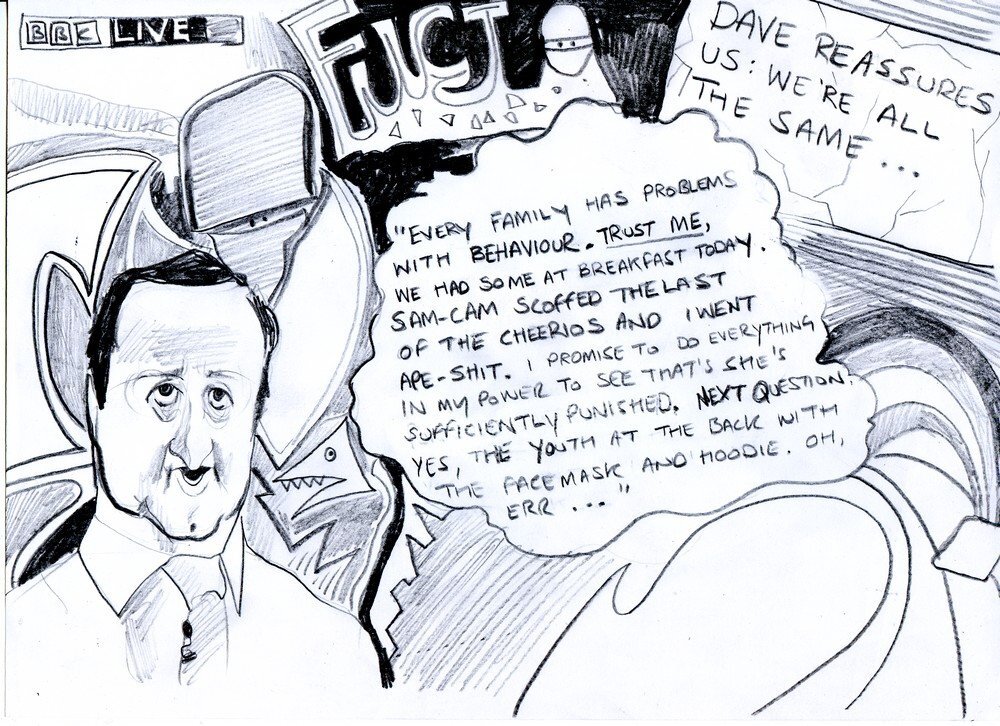 BBC LIVE
FUGT
DAVE REASSURES
US: WE'RE ALL
THE SAME...
"EVERY FAMILY HAS PROBLEMS
WITH BEHAVIOUR. TRUST ME,
WE HAD SOME AT BREAKFAST TODAY.
SAM-CAM SCOFFED THE LAST
OF THE CHEERIOS AND I WENT
APE-SHIT. I PROMISE TO DO EVERYTHING
IN MY POWER TO SEE THAT'S SHE'S
SUFFICIENTLY PUNISHED. NEXT QUESTION.
YES, THE YOUTH AT THE BACK WITH
THE FACEMASK AND HOODIE. OH,
ERR ..."